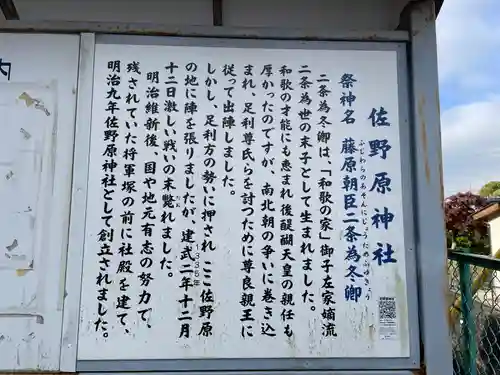 佐野原神社
祭神名　藤原朝臣二条為冬卿
ふじわらのあそんにじょうためふゆきょう
二条為冬卿は、「和歌の家」御子左家嫡流
二条為世の末子として生まれました。
和歌の才能にも恵まれ後醍醐天皇の親任も
厚かったのですが、南北朝の争いに巻き込
まれ、足利尊氏らを討つために尊良親王に
従って出陣しました。
しかし、足利方の勢いに押され、ここ佐野原
の地に陣を張りましたが、建武二年十二月
1335年
十二日激しい戦いの末斃れました。
たお
明治維新後、国や地元有志の努力で、
残されていた将軍塚の前に社殿を建て、
明治九年佐野原神社として創立されました。
内